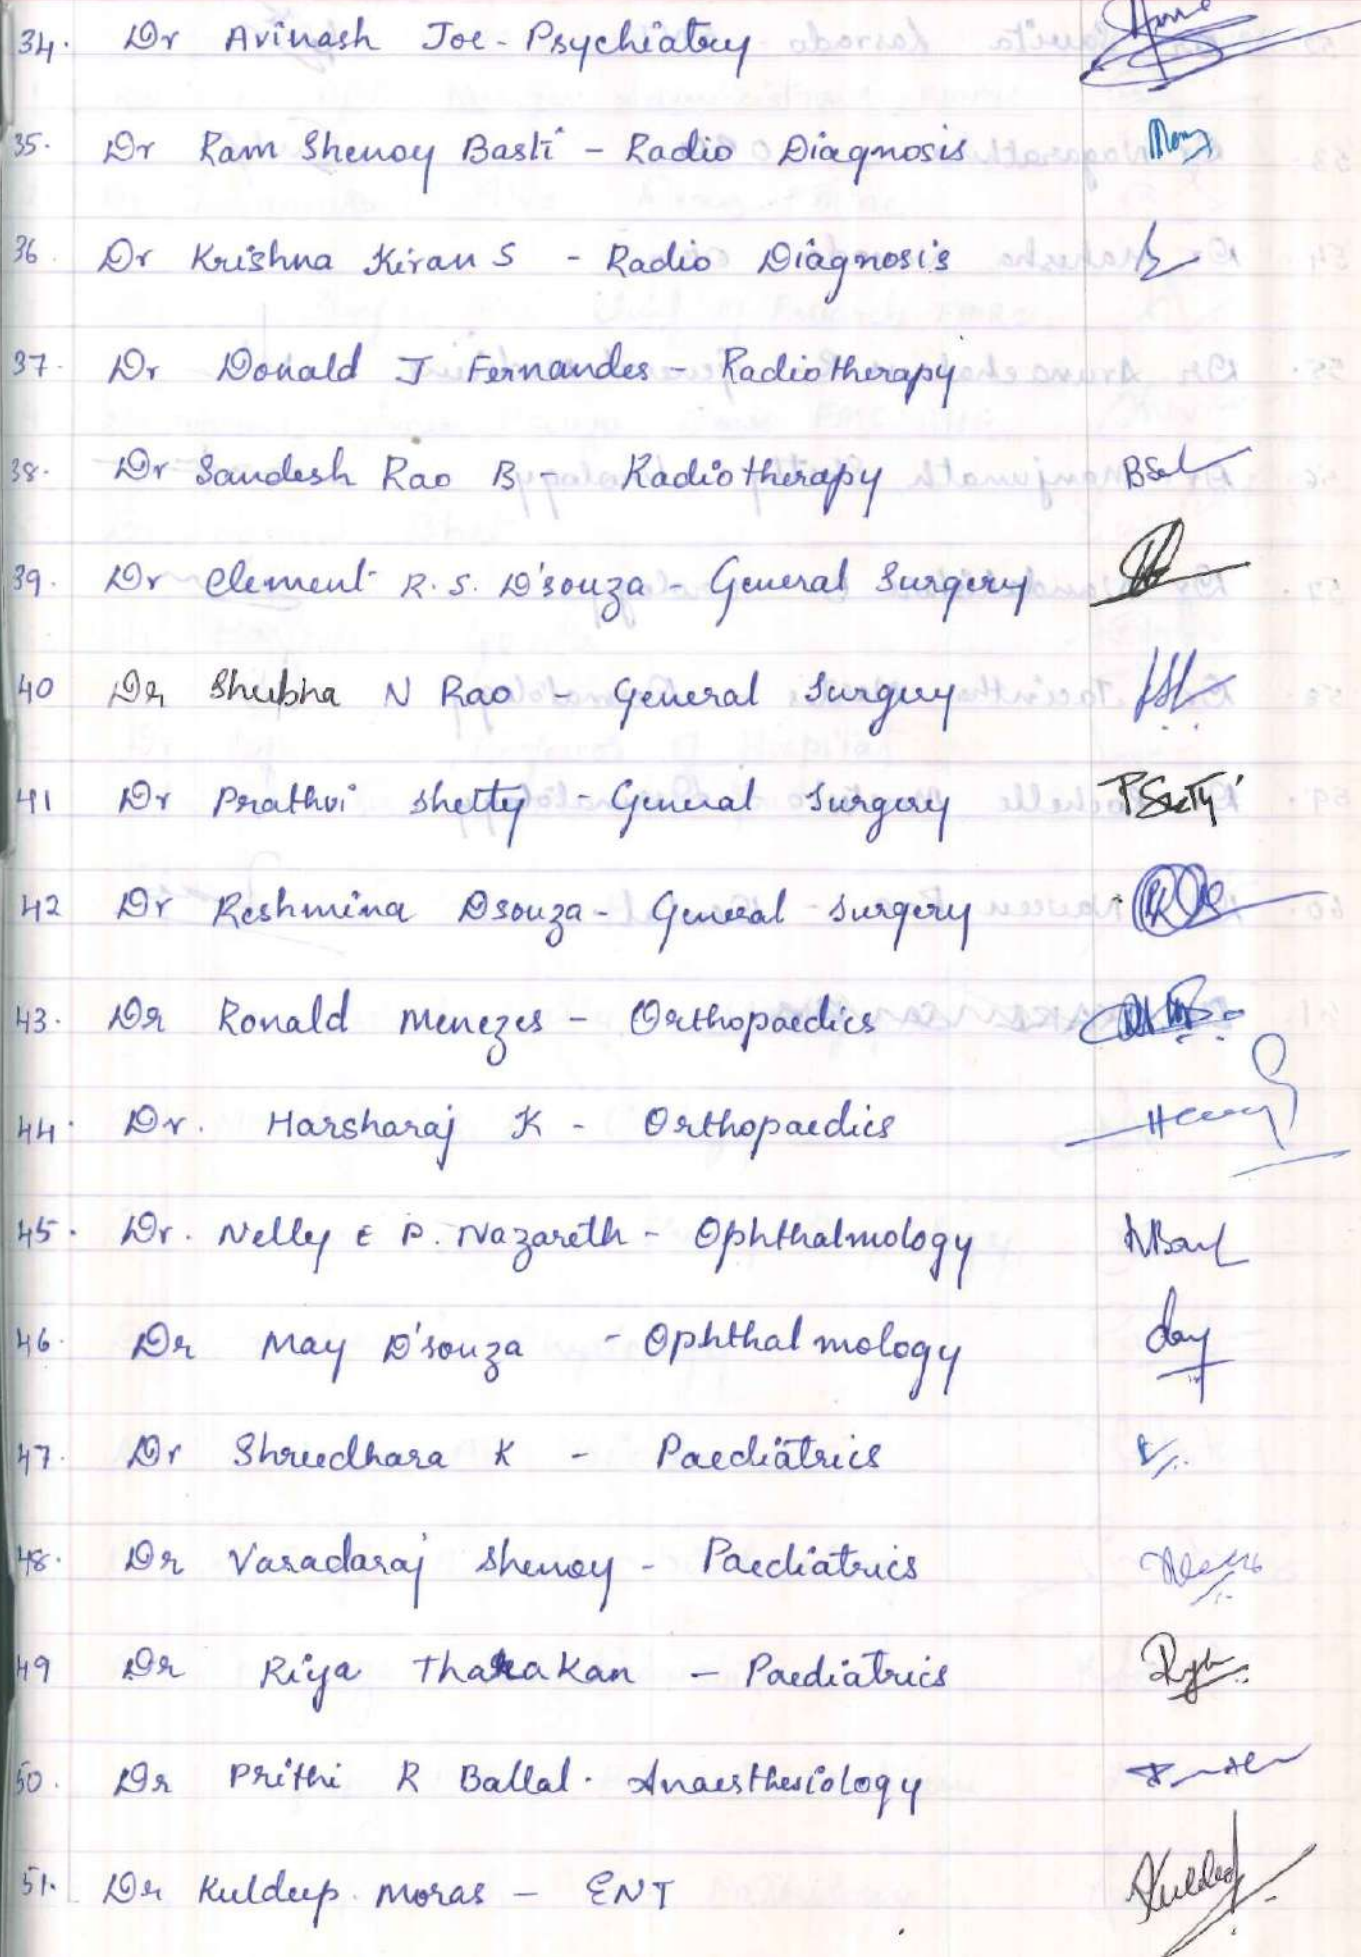 34. Dr Avinash Joe - Psychiatry
35. Dr Ram Shenoy Basti - Radio Diagnosis
36. Dr Krishna Kiran S - Radio Diagnosis
37. Dr Donald J Fernandes - Radiotherapy
38. Dr Sandesh Rao B - Radiotherapy BSel
39. Dr Clement R. S. D'souza - General Surgery
40 Dr Shubha N Rao - General Surgery
41 Dr Prathvi Shetty - General Surgery
42 Dr Reshmina Dsouza - General Surgery
43. Dr Ronald Menezes - Orthopaedics
44. Dr. Harsharaj K - Orthopaedics
45. Dr. Nelly E P. Nazareth - Ophthalmology
46. Dr May D'souza - Ophthalmology
47. Dr Shreedhara K - Paediatrics
48. Dr Varadaraj Shenoy - Paediatrics
49 Dr Riya Tharakan - Paediatrics
50. Dr Prithi R Ballal. Anaesthesiology
51. Dr Kuldeep Moras - ENT